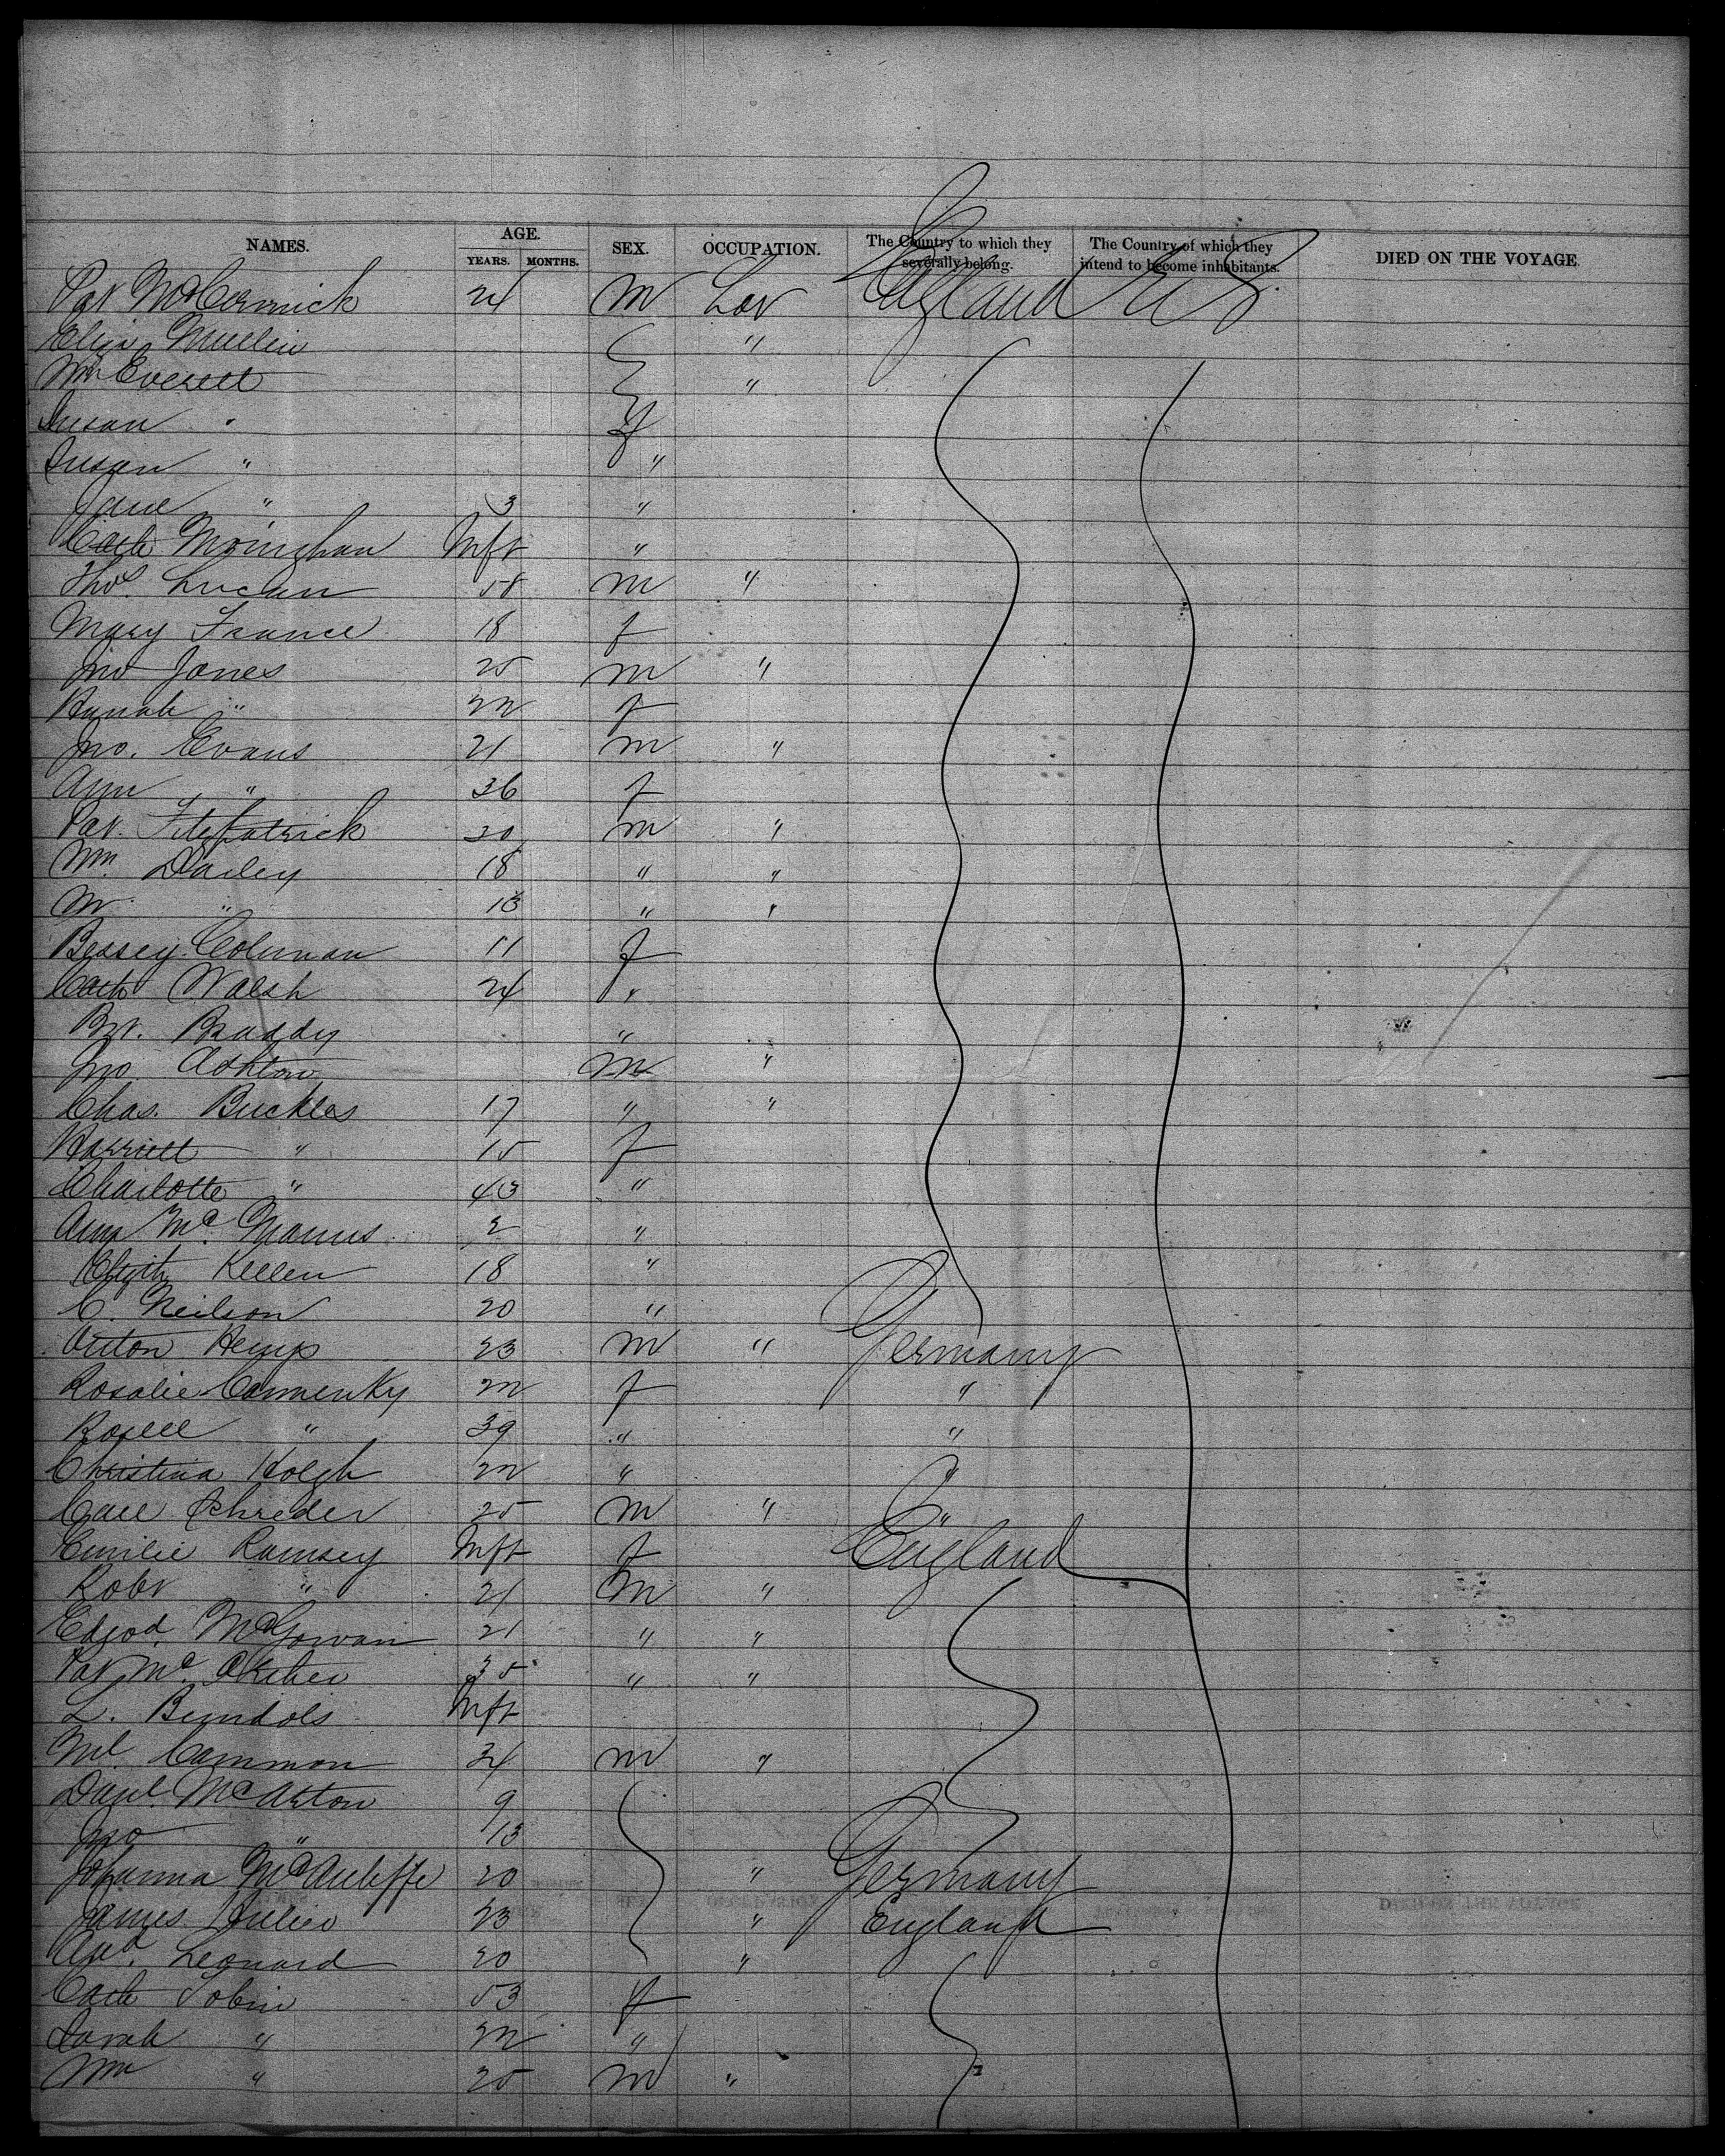 NAMES. AGE. YEARS. MONTHS. SEX. OCCUPATION. The Country to which they severally belong. The Country of which they intend to become inhabitants. DIED ON THE VOYAGE.
Pat McCormick 24 M Lab England U S
Eliza Mullin "
Wm Everett "
Susan " f
Susan " "
Jane " 3 "
Cath Moinghan Inft "
Thos. 58 m "
Mary France 18 f
Jno Jones 25 m "
Hanah " 22 f
Jno. Evans 21 m "
Ann " 36 f
Pat. Fitzpatrick 30 m "
Wm. Dailey 18 " "
M " 13 " "
Bessey Coleman 11 f
Cath Walsh 24 "
Bt. Braddy "
Jno Ashton m "
Chas. Buckles 17 " "
Harriett " 15 f
Charlotte " 43 "
Ann Mc Manus 2 "
Elizth Keelen 18 "
C. Neilson 20 "
Anton Hemp 23 m " Germany
Rosalie Commenky 22 f "
Rosell " 39 " "
Christina Holgh 22 " "
Carl Schreder 25 m " "
Emilie Ramsey Inft f England
Robt " 21 m "
Edwd. McGowan 21 " "
Pat Mc 35 " "
L. Bundols Inft
Ml Cammon 34 m "
Danl. McArton 9
Jno " 13
Johanna McAuliffe 20 " Germany
James 23 " England
And. Leonard 20 "
Cath Tobin 53 f
Sarah " 22 "
Wm " 25 m "